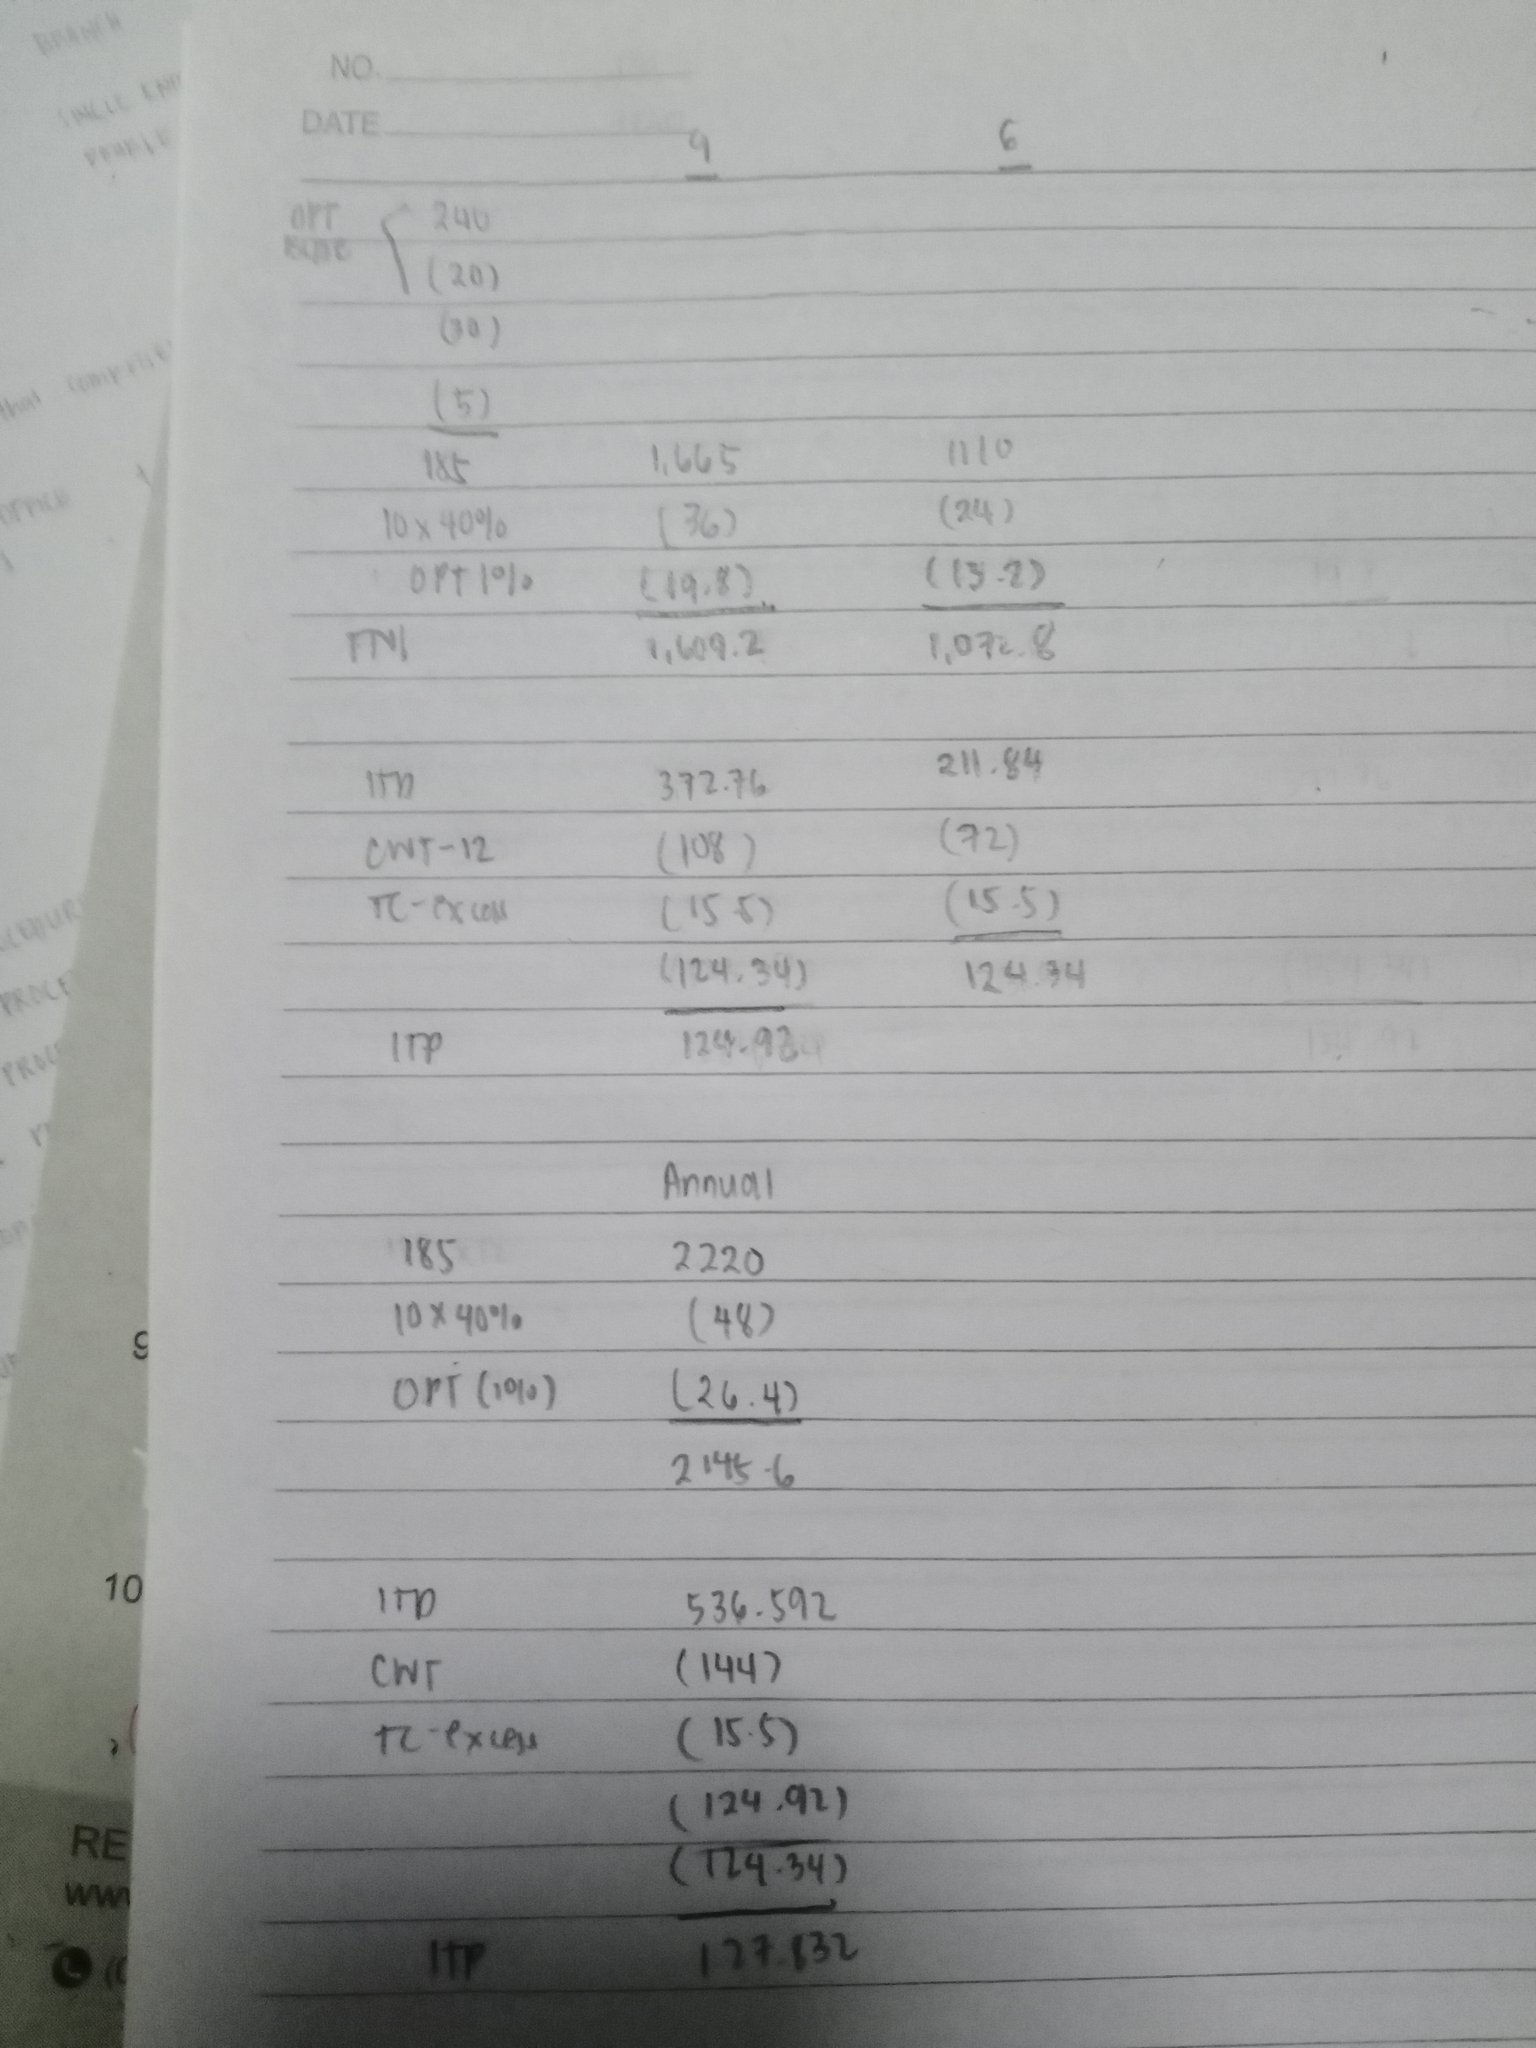 BRANCH
SINGLE
NO.
DATE
9 6
OPT 240
(20)
(30)
(5)
185 1,665 1110
10 x 40% (36) (24)
OPT 1% (19.8) (13.2)
1,609.2 1,072.8
ITD 372.76 211.84
CWT-12 (108) (72)
TC-excess (15.5) (15.5)
(124.34) 124.34
ITP 124.92
Annual
185 2220
10 x 40% (48)
OPT (1%) (26.4)
2145.6
ITD 536.592
CWT (144)
TC-excess (15.5)
(124.92)
(124.34)
ITP 127.832
that
9
10
RE
www